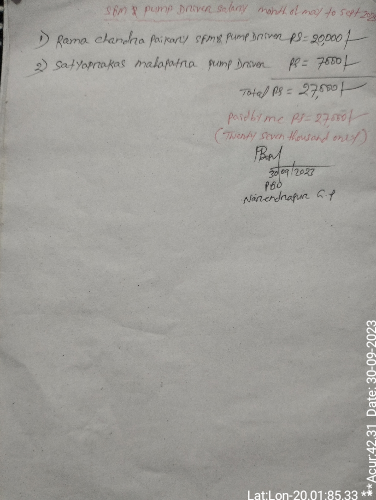 SEM & Pump Driver salary month of may to sept 2023
1) Rama chandra paikaray SEM & pump Driver RS = 20,000/-
2) Satyaprakas mahapatra pump Driver RS = 7500/-
Total RS = 27,500/-
paid by me RS = 27,500/-
(Twenty seven thousand only)
30/09/2023
PEO
Narendrapur G.P
Lat:Lon-20.01:85.33 ***Acur:42.31 Date: 30-09-2023